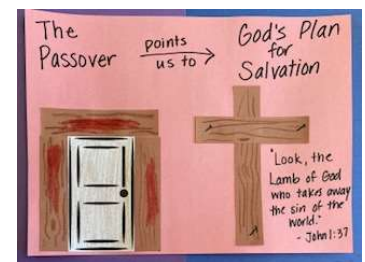 The
Passover
points
us to
God's Plan
for
Salvation
"Look, the
Lamb of God
who takes away
the sin of the
world."
- John 1:37